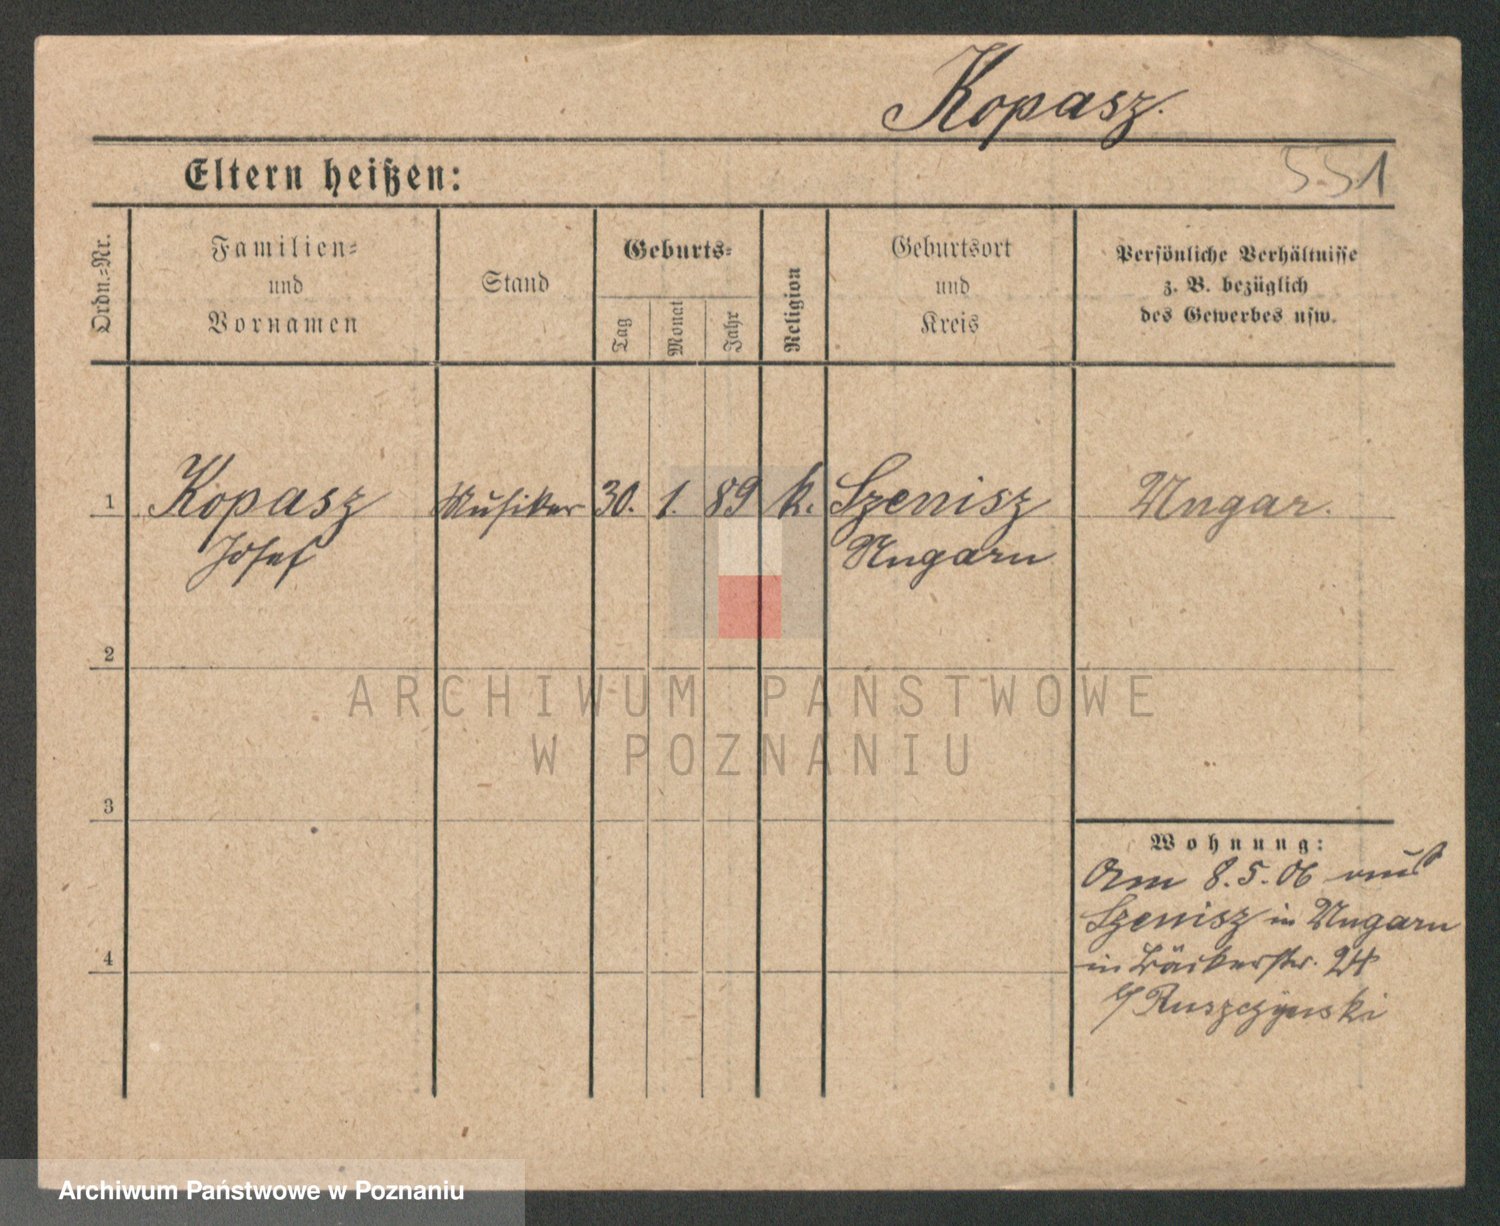 Kopasz.
Eltern heißen:
551
Ordn.-Nr.
Familien-
und
Vornamen
Stand
Geburts-
Tag
Monat
Jahr
Religion
Geburtsort
und
Kreis
Persönliche Verhältnisse
z. B. bezüglich
des Gewerbes usw.
1 Kopasz Musiker 30. 1. 89 k. Szenisz Ungar.
Josef Ungarn
2
3
4
Wohnung:
Am 8.5.06 aus
Szenisz in Ungarn
in Bäckerstr. 24
b/ Ruszczynski
ARCHIWUM PAŃSTWOWE
W POZNANIU
Archiwum Państwowe w Poznaniu